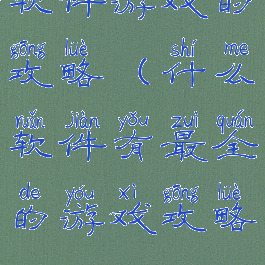 软件游戏的
gōng lüè shí me
攻略(什么
ruǎn jiàn yǒu zuì quán
软件有最全
de yóu xì gōng lüè
的游戏攻略